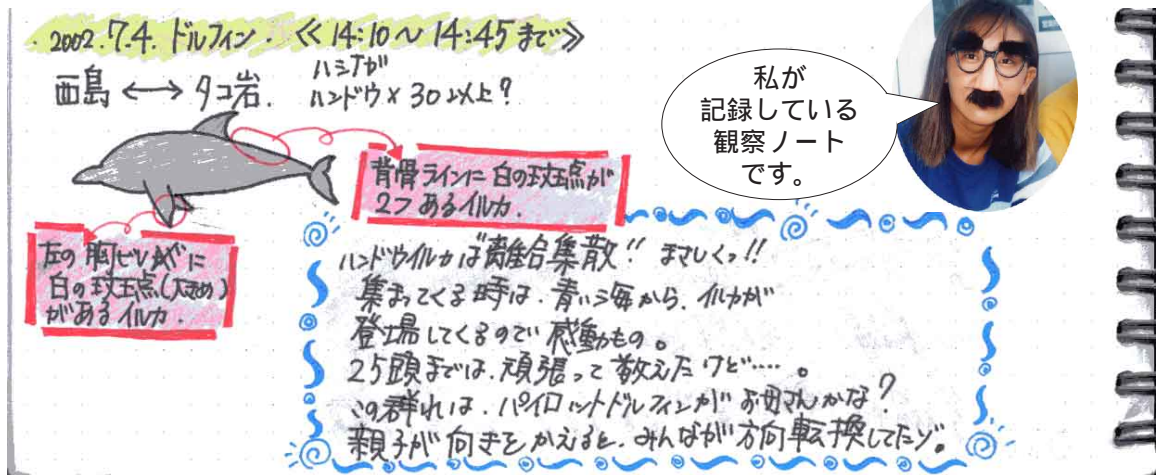 2002.7.4. ドルフィン. ≪14:10〜14:45まで≫
西島 ⟷ タコ岩.
ハシナガ
ハンドウ×30以上?
私が
記録している
観察ノート
です。
背骨ラインに白の斑点が
2つあるイルカ.
左の胸ビレに
白の斑点(大きめ)
があるイルカ.
ハンドウイルカは"離合集散!! まさしくっ!!
集まってくる時は.青い海から.イルカが
登場してくるので感動もの。
25頭までは.頑張って数えたけど……。
この群れは.パイロットドルフィンがお母さんかな?
親子が向きをかえると.みんなが方向転換してたゾ。